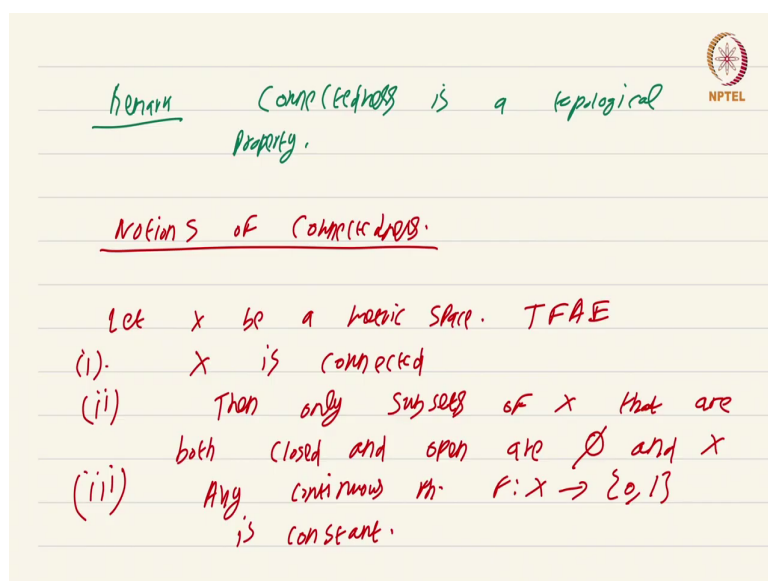 NPTEL
Remark Connectedness is a topological
Property.
Notions of Connectedness.
Let X be a metric space. TFAE
(i). X is connected
(ii) Then only subsets of X that are
both closed and open are ∅ and X
(iii) Any continuous fn. F: X → {0,1}
is constant.